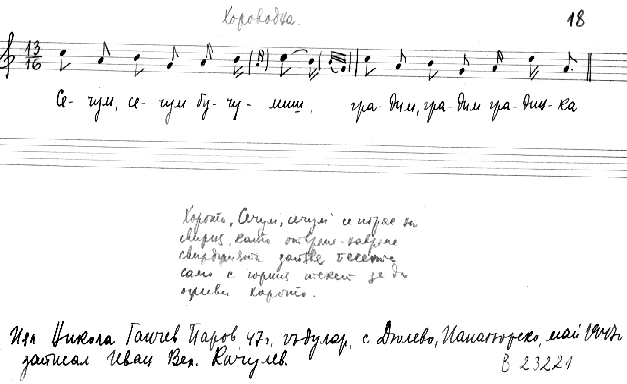 Хороводна.
18
13
16
Се- чум, се- чум бу- чу- миш, гра- дим, гра- дим гра- дин- ка
Хорото „Сечум, сечум" се играе на
свирня, като от време-навреме
свирачът запява песента
само с горния текст за да
оживи хорото.
Изп Никола Ганчев Паров, 47г. гъдулар, с. Дюлево, Панагюрско, май 1947г.
записал Иван Вел. Качулев.
В 23221